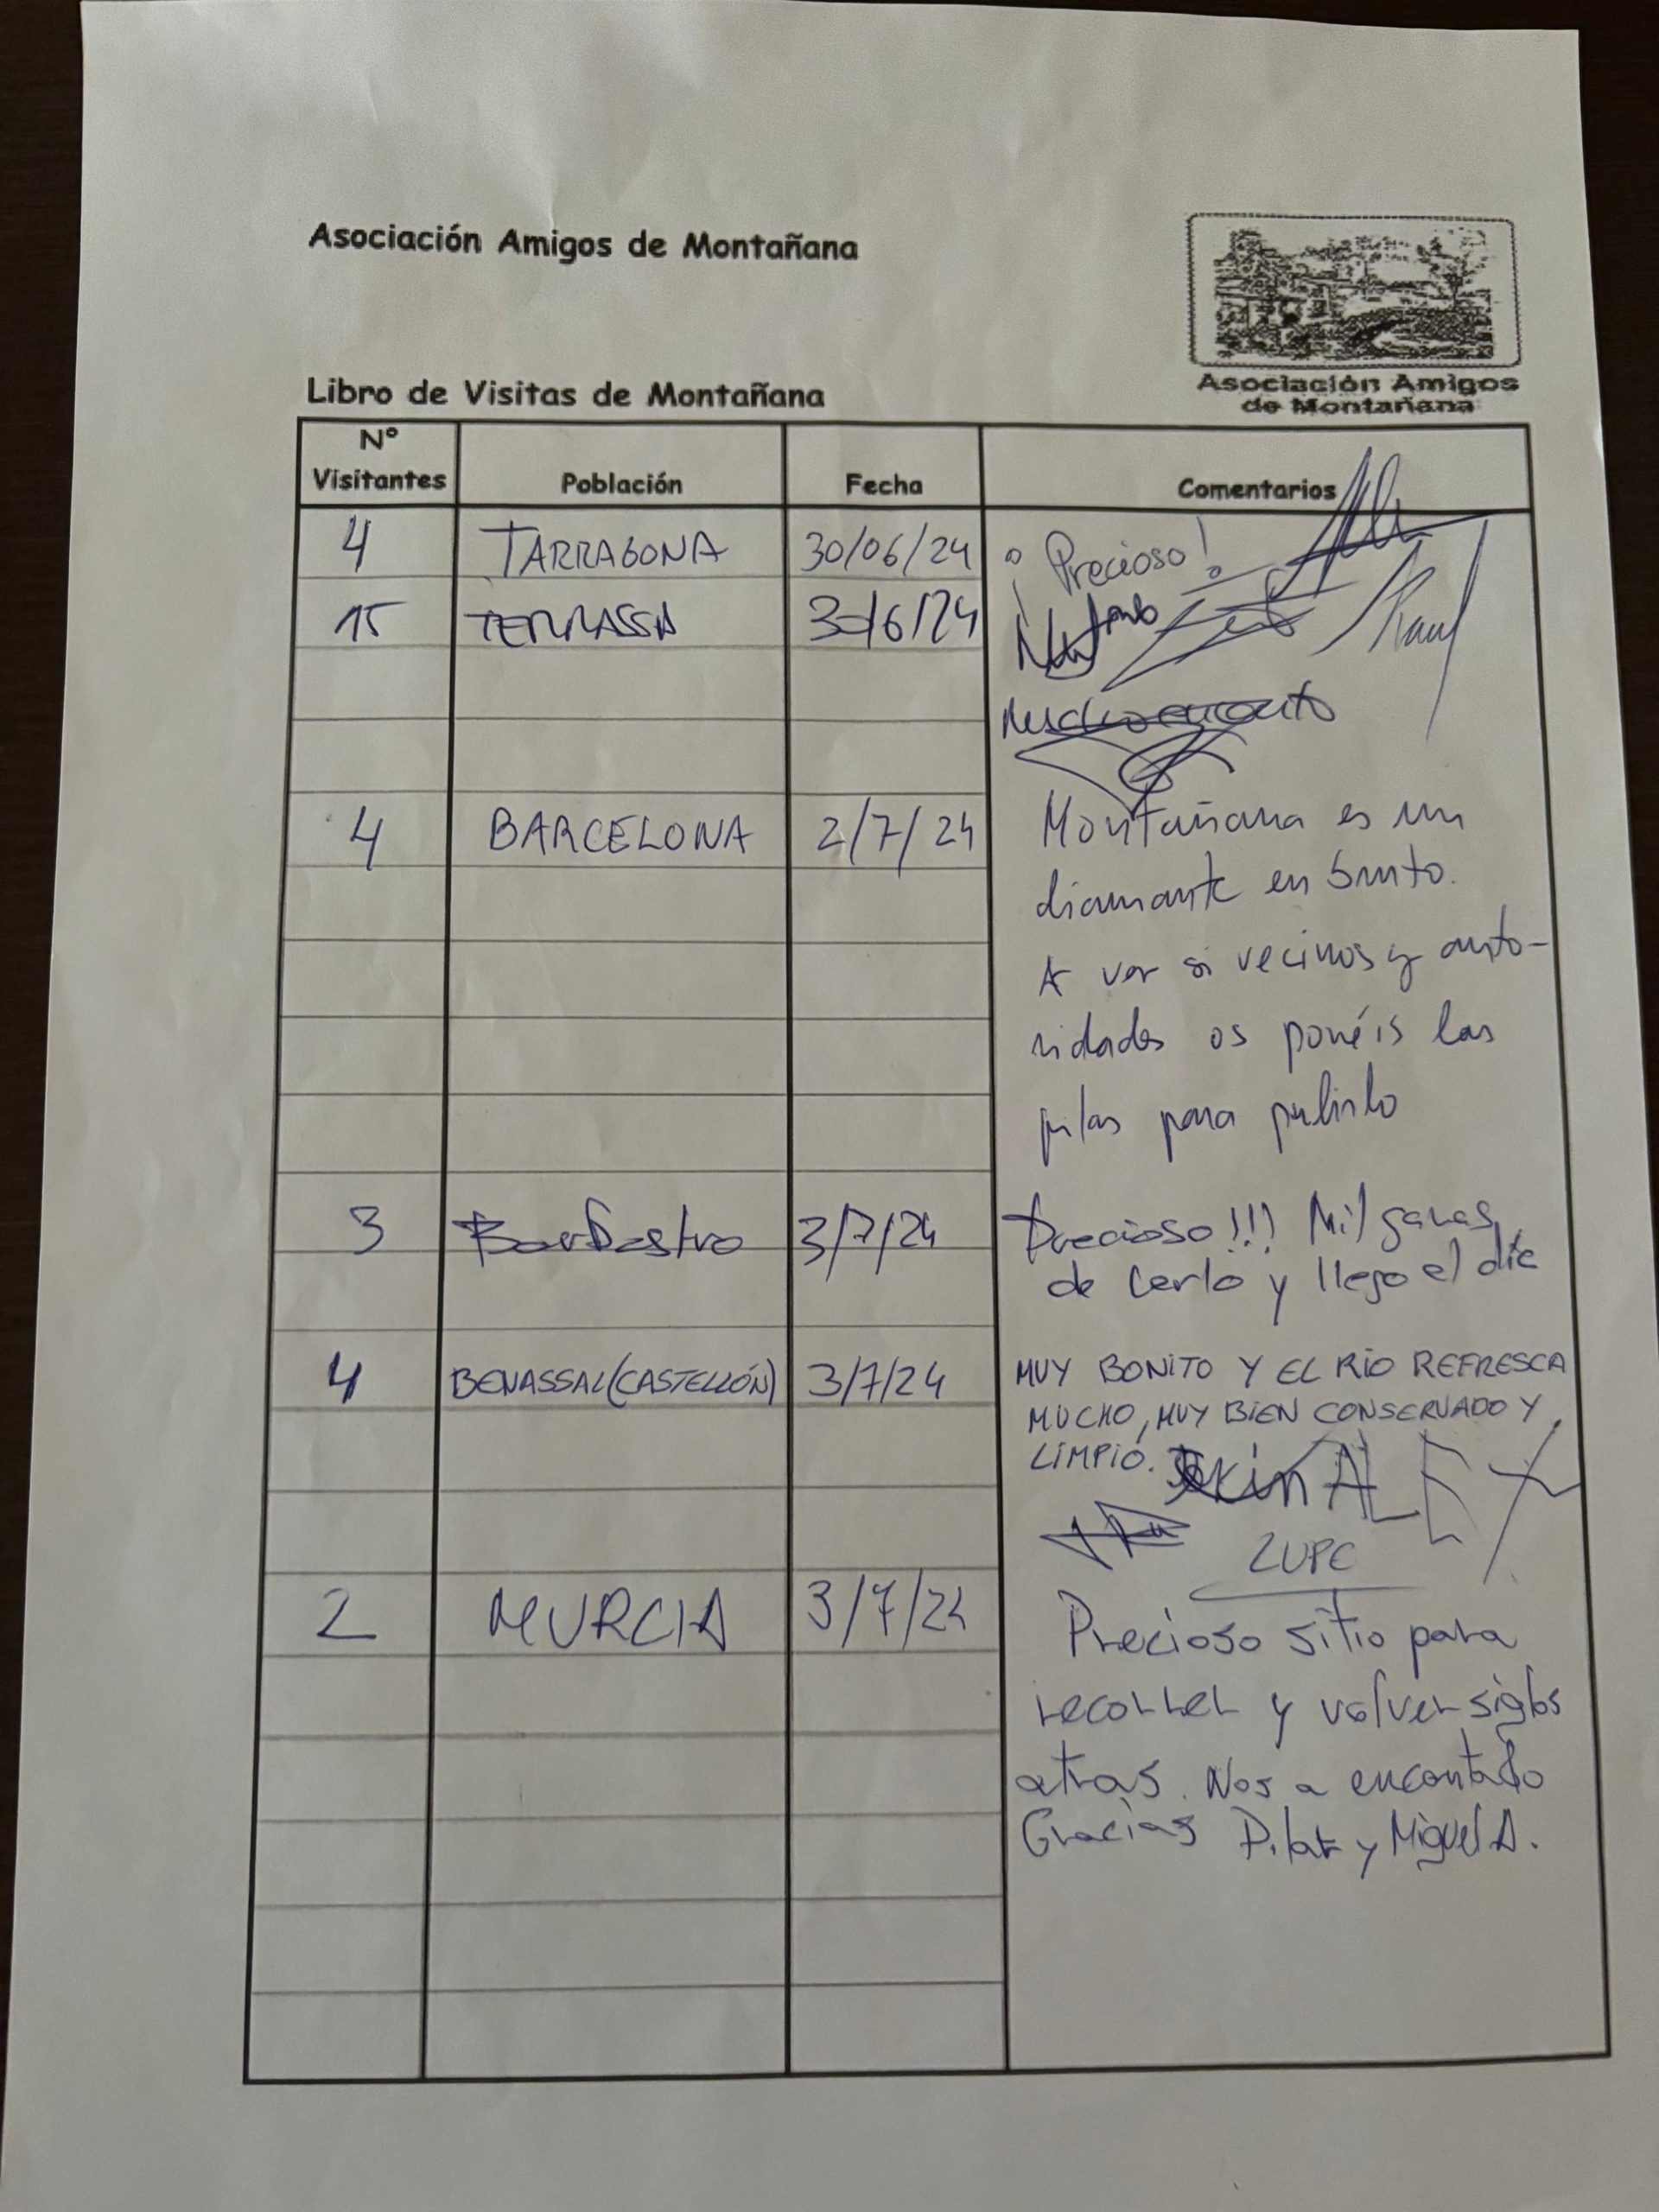 Asociación Amigos de Montañana
Asociación Amigos
de Montañana
Libro de Visitas de Montañana
Nº Visitantes Población Fecha Comentarios
4 TARRAGONA 30/06/24 ¡Precioso!
15 TERRASSA 30/6/24
Raul
4 BARCELONA 2/7/24 Montañana es un
diamante en bruto.
A ver si vecinos y auto-
ridades os ponéis las
pilas para pulirlo
3 Barbastro 3/7/24 Precioso!!! Mil ganas
de verlo y llego el día
4 BENASSAL (CASTELLÓN) 3/7/24 MUY BONITO Y EL RÍO REFRESCA
MUCHO, MUY BIEN CONSERVADO Y
LIMPIO. ALEX
LUPE
2 MURCIA 3/7/24 Precioso sitio para
recorrer y volver siglos
atras. Nos a encantado
Gracias Pilar y Miguel A.